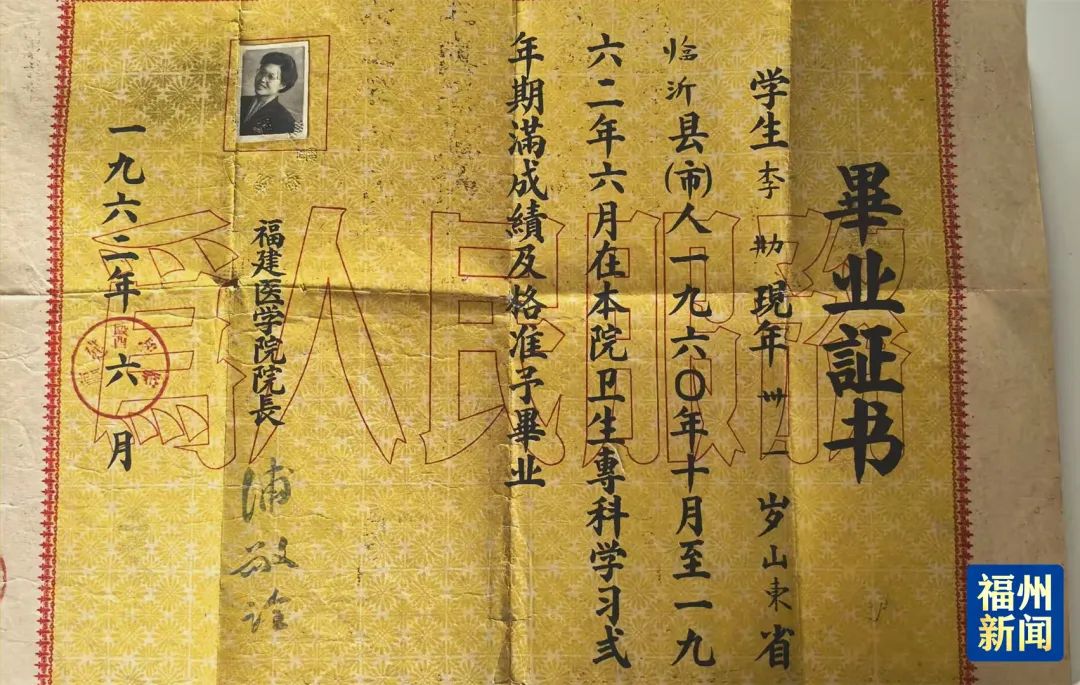 畢业証书
学生李 現年 一岁山東省
临沂县(市)人一九六〇年十月至一九
六二年六月在本院卫生專科学习弍
年期滿成績及格准予畢业
福建医学院院長
一九六二年六月
為人民服務
福州
新闻